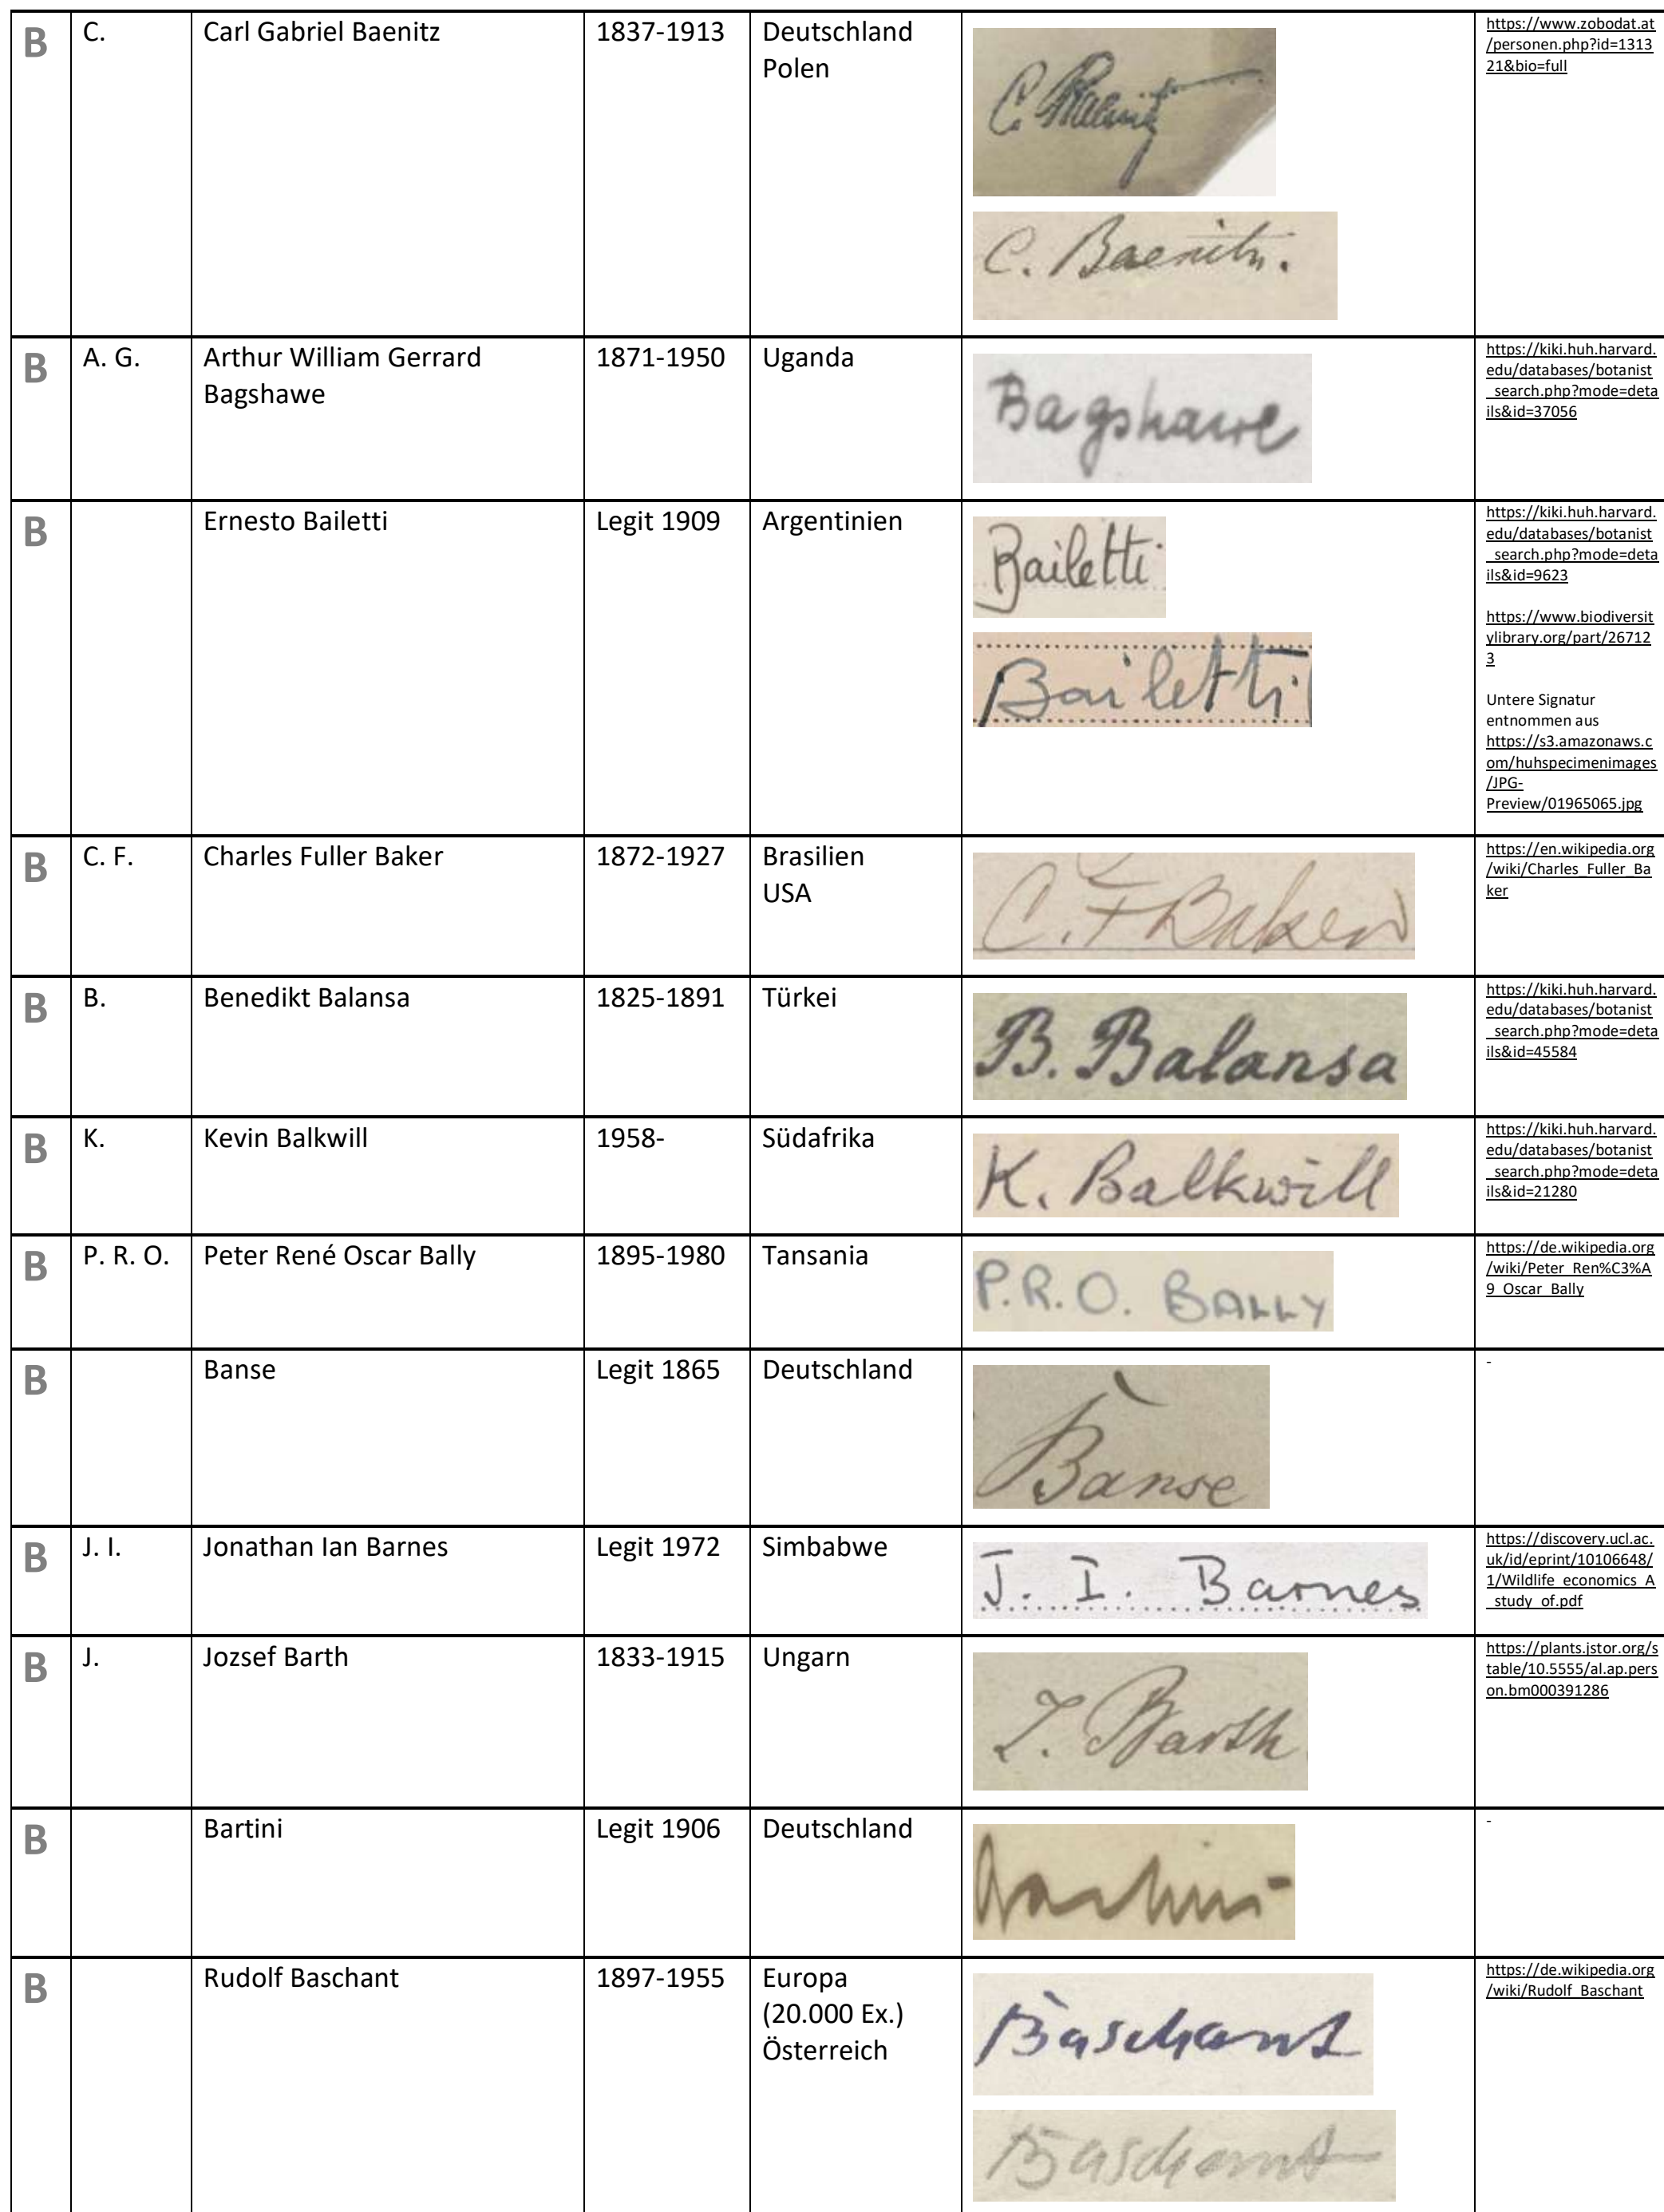 B C. Carl Gabriel Baenitz 1837-1913 Deutschland
Polen
C. Baenitz
C. Baenitz.
https://www.zobodat.at
/personen.php?id=1313
21&bio=full
B A. G. Arthur William Gerrard
Bagshawe 1871-1950 Uganda
Bagshawe
https://kiki.huh.harvard.
edu/databases/botanist
_search.php?mode=deta
ils&id=37056
B Ernesto Bailetti Legit 1909 Argentinien
Bailetti
Bailetti
https://kiki.huh.harvard.
edu/databases/botanist
_search.php?mode=deta
ils&id=9623
https://www.biodiversit
ylibrary.org/part/26712
3
Untere Signatur
entnommen aus
https://s3.amazonaws.c
om/huhspecimenimages
/JPG-
Preview/01965065.jpg
B C. F. Charles Fuller Baker 1872-1927 Brasilien
USA
C. F Baker
https://en.wikipedia.org
/wiki/Charles_Fuller_Ba
ker
B B. Benedikt Balansa 1825-1891 Türkei
B. Balansa
https://kiki.huh.harvard.
edu/databases/botanist
_search.php?mode=deta
ils&id=45584
B K. Kevin Balkwill 1958- Südafrika
K. Balkwill
https://kiki.huh.harvard.
edu/databases/botanist
_search.php?mode=deta
ils&id=21280
B P. R. O. Peter René Oscar Bally 1895-1980 Tansania
P.R.O. BALLY
https://de.wikipedia.org
/wiki/Peter_Ren%C3%A
9_Oscar_Bally
B Banse Legit 1865 Deutschland
Banse
-
B J. I. Jonathan Ian Barnes Legit 1972 Simbabwe
J. I. Barnes
https://discovery.ucl.ac.
uk/id/eprint/10106648/
1/Wildlife_economics_A
_study_of.pdf
B J. Jozsef Barth 1833-1915 Ungarn
J. Barth
https://plants.jstor.org/s
table/10.5555/al.ap.pers
on.bm000391286
B Bartini Legit 1906 Deutschland
Bartini
-
B Rudolf Baschant 1897-1955 Europa
(20.000 Ex.)
Österreich
Baschant
Baschant
https://de.wikipedia.org
/wiki/Rudolf_Baschant